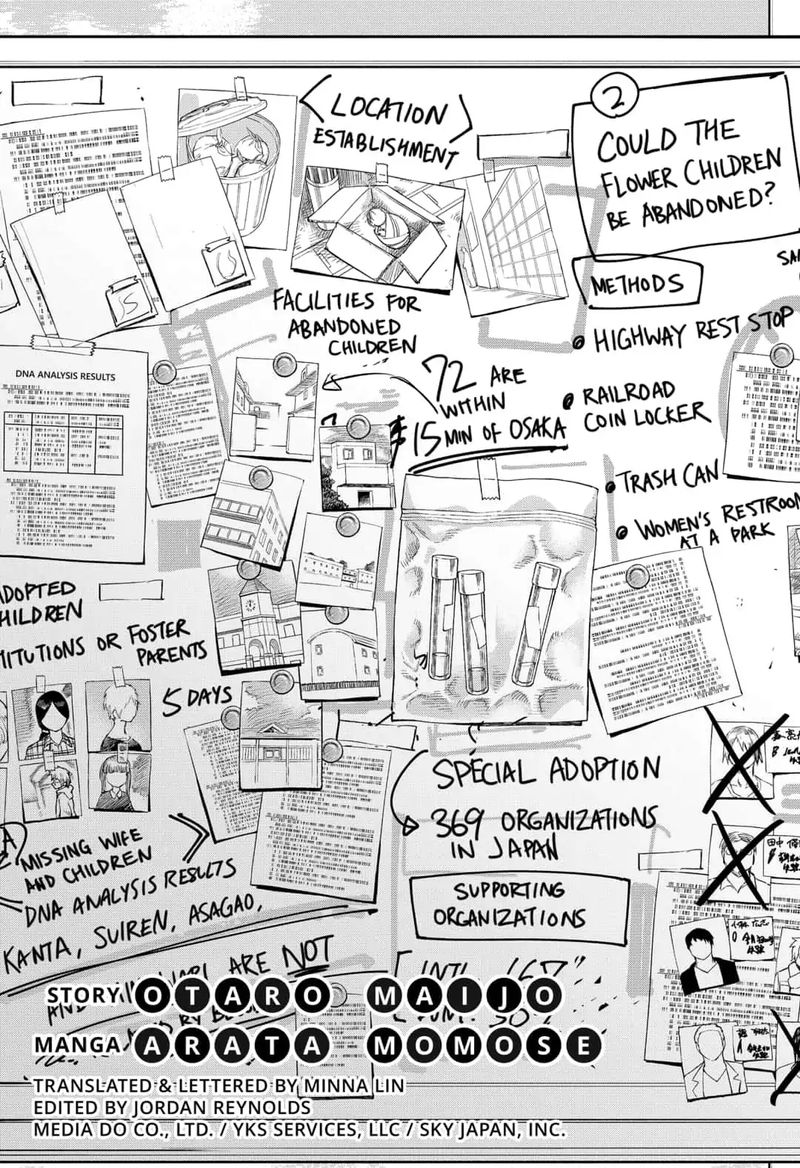 LOCATION
ESTABLISHMENT
2
COULD THE
FLOWER CHILDREN
BE ABANDONED?
METHODS
HIGHWAY REST STOP
RAILROAD
COIN LOCKER
TRASH CAN
WOMEN'S RESTROOM
AT A PARK
FACILITIES FOR
ABANDONED
CHILDREN
72 ARE
WITHIN
15 MIN OF OSAKA
DNA ANALYSIS RESULTS
ADOPTED
CHILDREN
OR FOSTER
PARENTS
5 DAYS
SPECIAL ADOPTION
369 ORGANIZATIONS
IN JAPAN
SUPPORTING
ORGANIZATIONS
A
MISSING WIFE
AND CHILDREN
DNA ANALYSIS RESULTS
KANTA, SUIREN, ASAGAO,
ARE NOT
STORY OTARO MAIJO
MANGA ARATA MOMOSE
TRANSLATED & LETTERED BY MINNA LIN
EDITED BY JORDAN REYNOLDS
MEDIA DO CO., LTD. / YKS SERVICES, LLC / SKY JAPAN, INC.